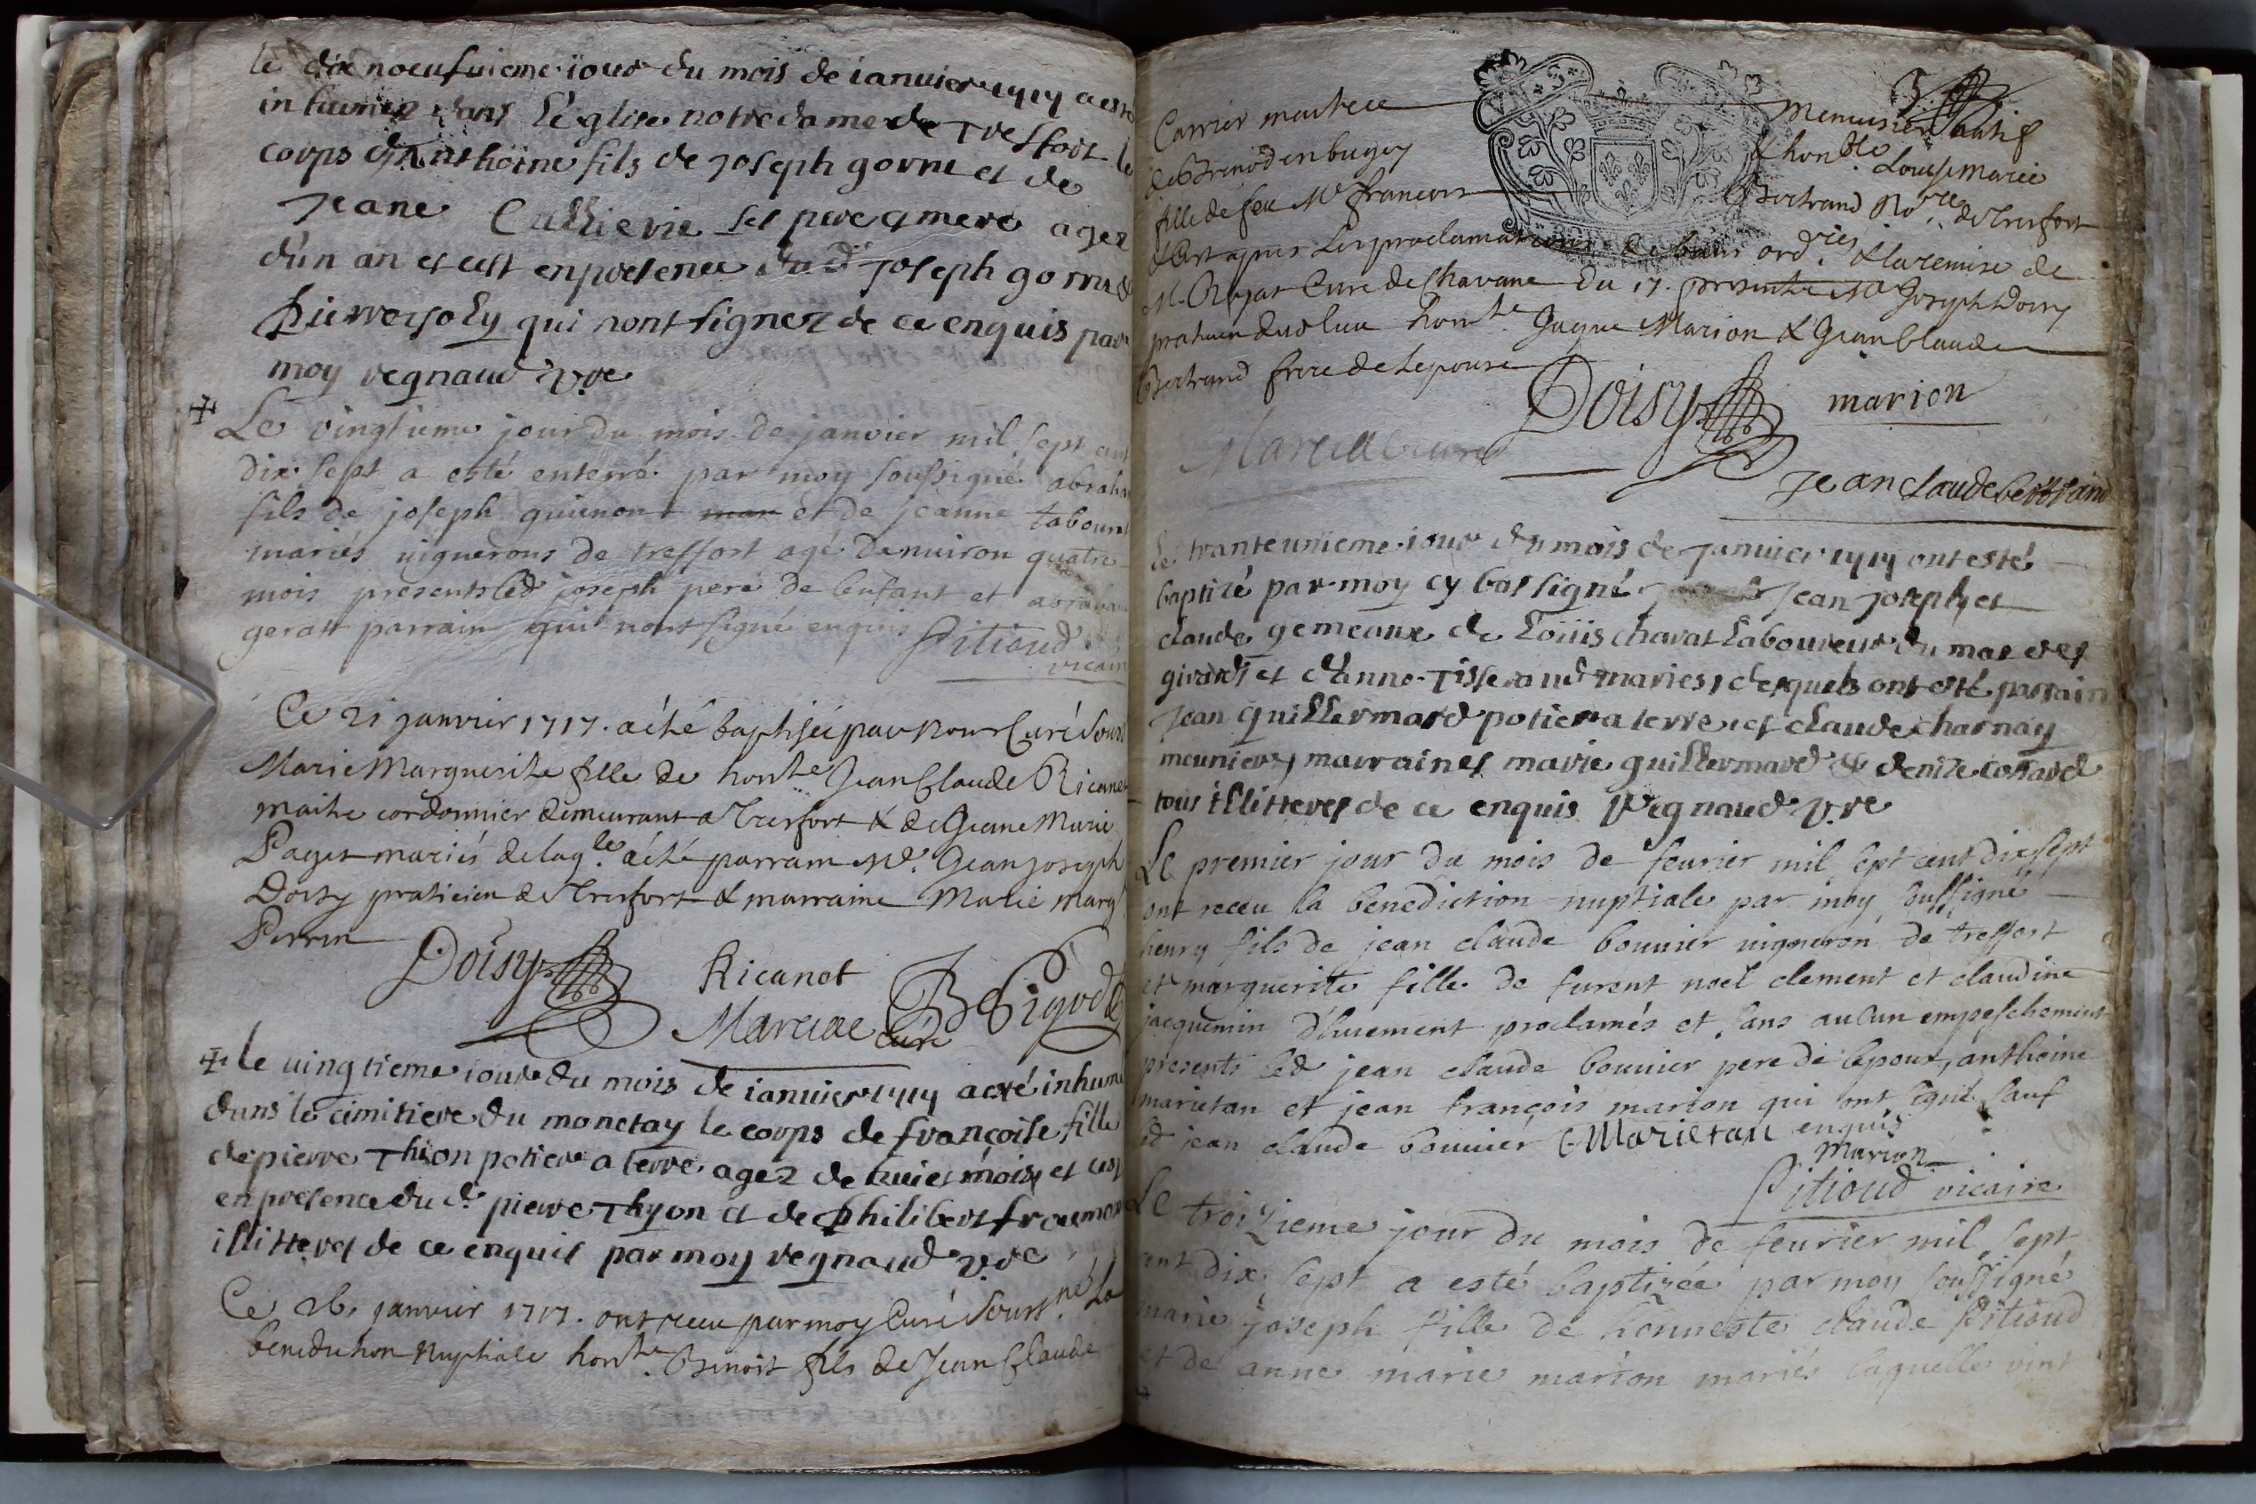 le dix noeufuieme iour du mois de ianvier 1717 a esté
inhumez dans l'eglise notre dame de Treffort le
corps d'Anthoine fils de Joseph gorru et de
Jeane Cuthierie ses pere & mere agez
d'un an et cest en presence du d Joseph gorru &
Pierre joly qui nont signez de ce enquis par
moy regnaud v.re
Le vingtieme jour du mois de janvier mil sept cent
dix sept a esté enterré par moy soussigné abraham
fils de joseph guienon et de jeanne tabouret
mariés uignerons de treffort agé denuiron quatre
mois presents led joseph pere de lenfant et abraham
geratt parrain qui nont signé enquis Pitioud
vicaire
Ce 21 janvir 1717. a été baptisée par nous Curé souss
Marie Marguerite fille de hon.te Jean Claude Ricanet
maitre cordonnier demeurant a Treffort & de Jeane Marie
Pages mariés de laq.le a été parrain M.e Jean Joseph
Doisy praticien de Treffort & marraine Marie Marg.
Perrin
Doisy Ricanot B Pigod
Marciae curé
le uingtieme iour du mois de ianvier 1717 a esté inhumé
dans le cimitiere du monetay le corps de françoise fille
de pierre Thion potier a terre agez de huict mois, et cest
en presence du d. pierre Thyon et de Philibert froumon
illitteres de ce enquis par moy regnaud v.re
Ce 26. janvier 1717. ont receu par moy Curé souss.né La
benediction nuptiale hon.te Benoit fils de Jean Claude
Carrier maitre menuisier natif
de Brenod en bugey & hon.ble Louise Marie
fille de feu M.e francois Bertrand No.re de Treffort
& c'est apres les proclamations de bans ord.res & la remise de
M. Royat Curé de Chavane du 17. presents M.e Joseph Doisy
praticien dud lieu hon.te Jaque Marion & Jean Claude
Bertrand frere de Lepouse
Doisy marion
Marciae curé
Jean claude bertrand
Le trante unieme iour du mois de Januier 1717 ont esté
baptizé par moy cy bas signé Jean Joseph et
claude gemeaux de Loüis chavat Laboureur du mas des
girards et d'Anne Tisserand maries, desquels ont esté parrain
Jean Guillermard potier a terre, et claude charnay
meunier, marraines marie guillermard & denize cottard
tous illitteres de ce enquis Regnaud v.re
Le premier jour du mois de feurier mil sept cent dix sept
ont receu la benediction nuptiale par moy soussigné
henry fils de jean claude bouuier uigneron de treffort
et marguerite fille de furent noel clement et claudine
jacquemin dhuement proclamés et sans aucun empeschement
presents led jean claude bouuier pere de lepoux, anthoine
marietan et jean françois marion qui ont signé sauf
led jean claude bouuier enquis Marietan
Marion
Pitioud vicaire
Le troizieme jour du mois de feurier mil sept
cent dix sept a esté baptizée par moy soussigné
marie joseph fille de honneste claude Pitioud
et de anne marie marion mariés laquelle vint